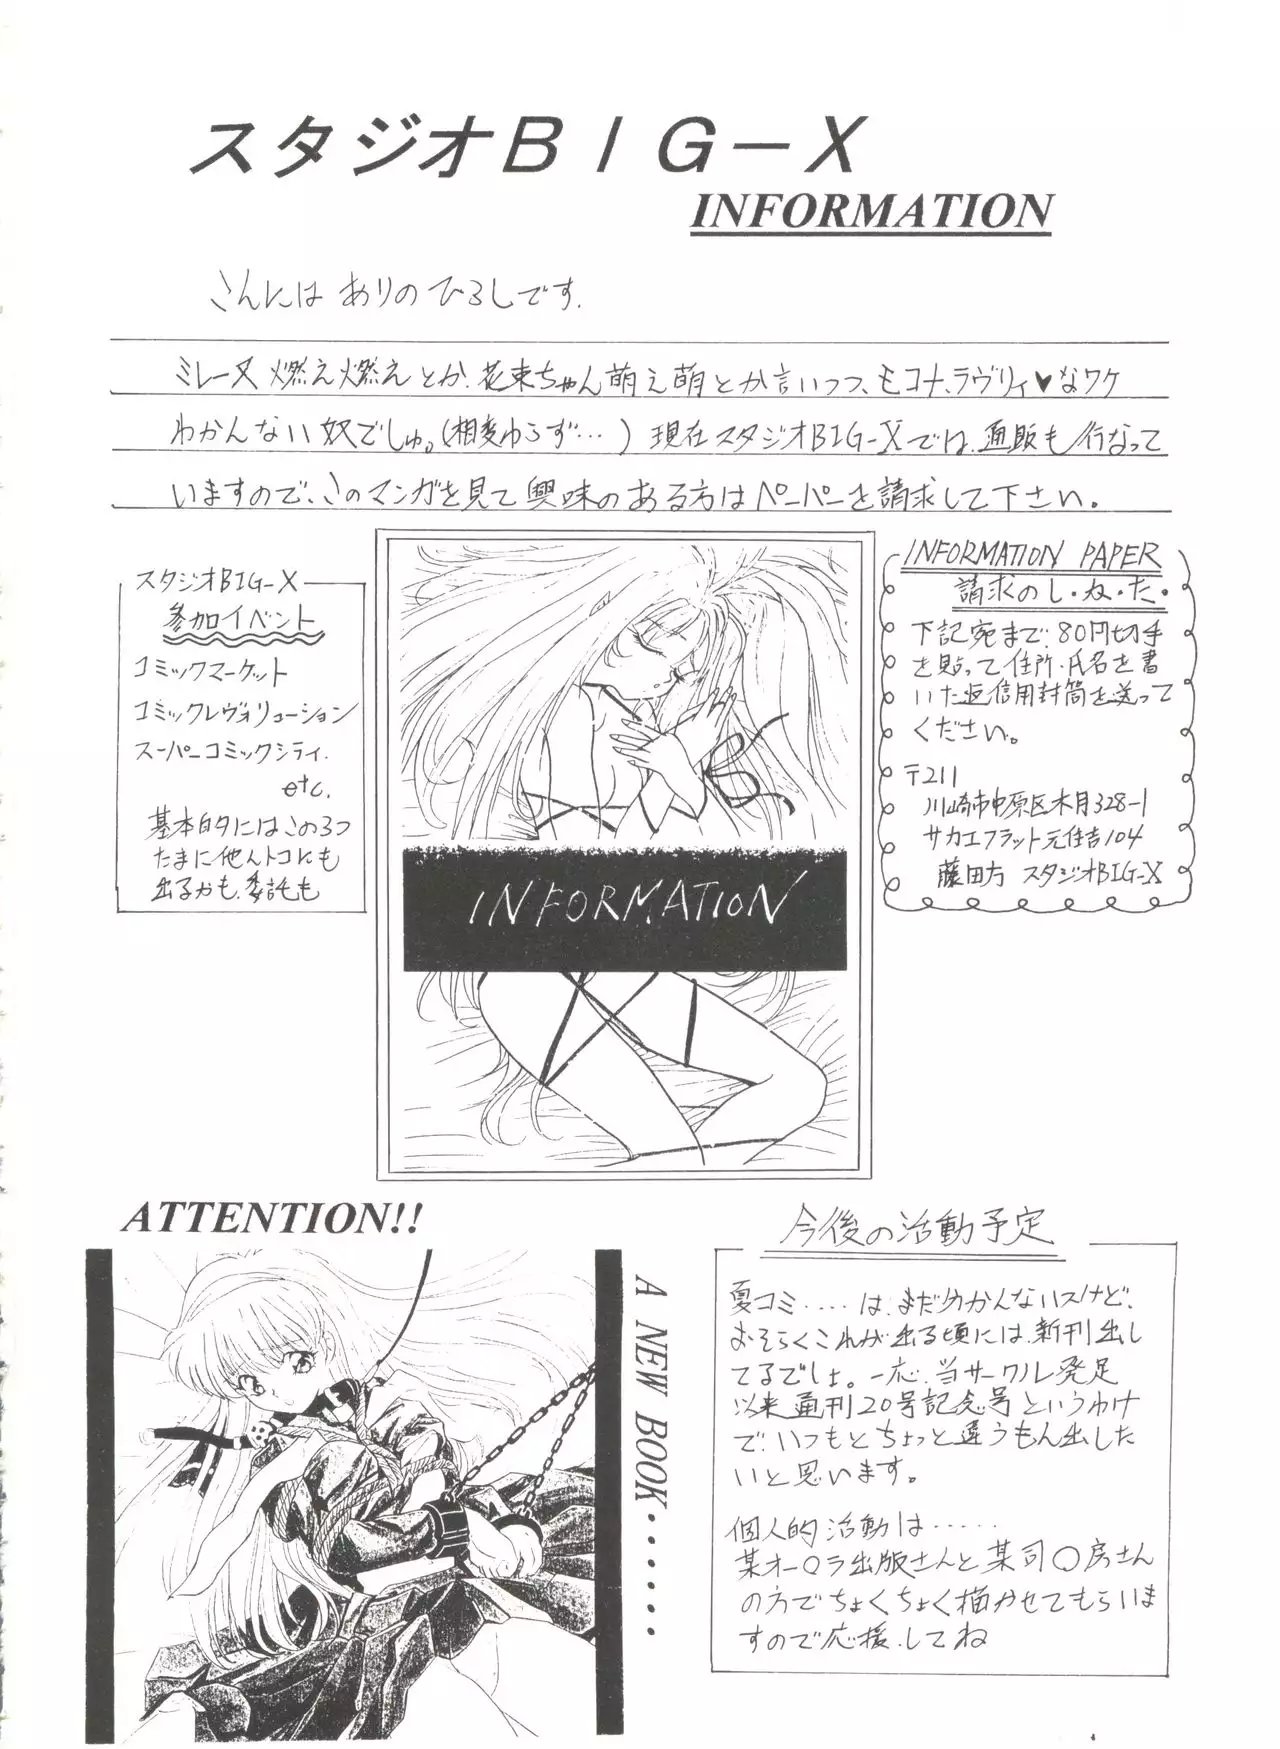 スタジオBIG-X
INFORMATION
こんにちは ありのひろしです.
ミレーヌ燃え燃えとか、花束ちゃん萌え萌とか言いつつ、モコナ、ラヴリィ♥なワケ
わかんない奴でしゅ。(相変わらず…) 現在スタジオBIG-Xでは、通販も行なって
いますので、このマンガを見て興味のある方はペーパーを請求して下さい。
スタジオBIG-X
参加イベント
コミックマーケット
コミックレヴォリューション
スーパーコミックシティ.
etc.
基本的にはこの3つ
たまに他んトコにも
出るかも、委託も
INFORMATION PAPER
請求のし・か・た・
下記宛まで、80円切手
を貼って住所・氏名を書
いた返信用封筒を送って
ください。
〒211
川崎市中原区木月328-1
サカエフラット元住吉104
藤田方 スタジオBIG-X
INFORMATION
ATTENTION!!
A NEW BOOK・・・・・・
今後の活動予定
夏コミ‥‥は、まだ分かんないスけど、
おそらくこれが出る頃には、新刊出し
てるでしょ。一応、当サークル発足
以来通刊20号記念号というわけ
で、いつもとちょっと違うもん出した
いと思います。
個人的活動は……
某オー○ラ出版さんと某司○房さん
の方でちょくちょく描かせてもらいま
すので応援してね